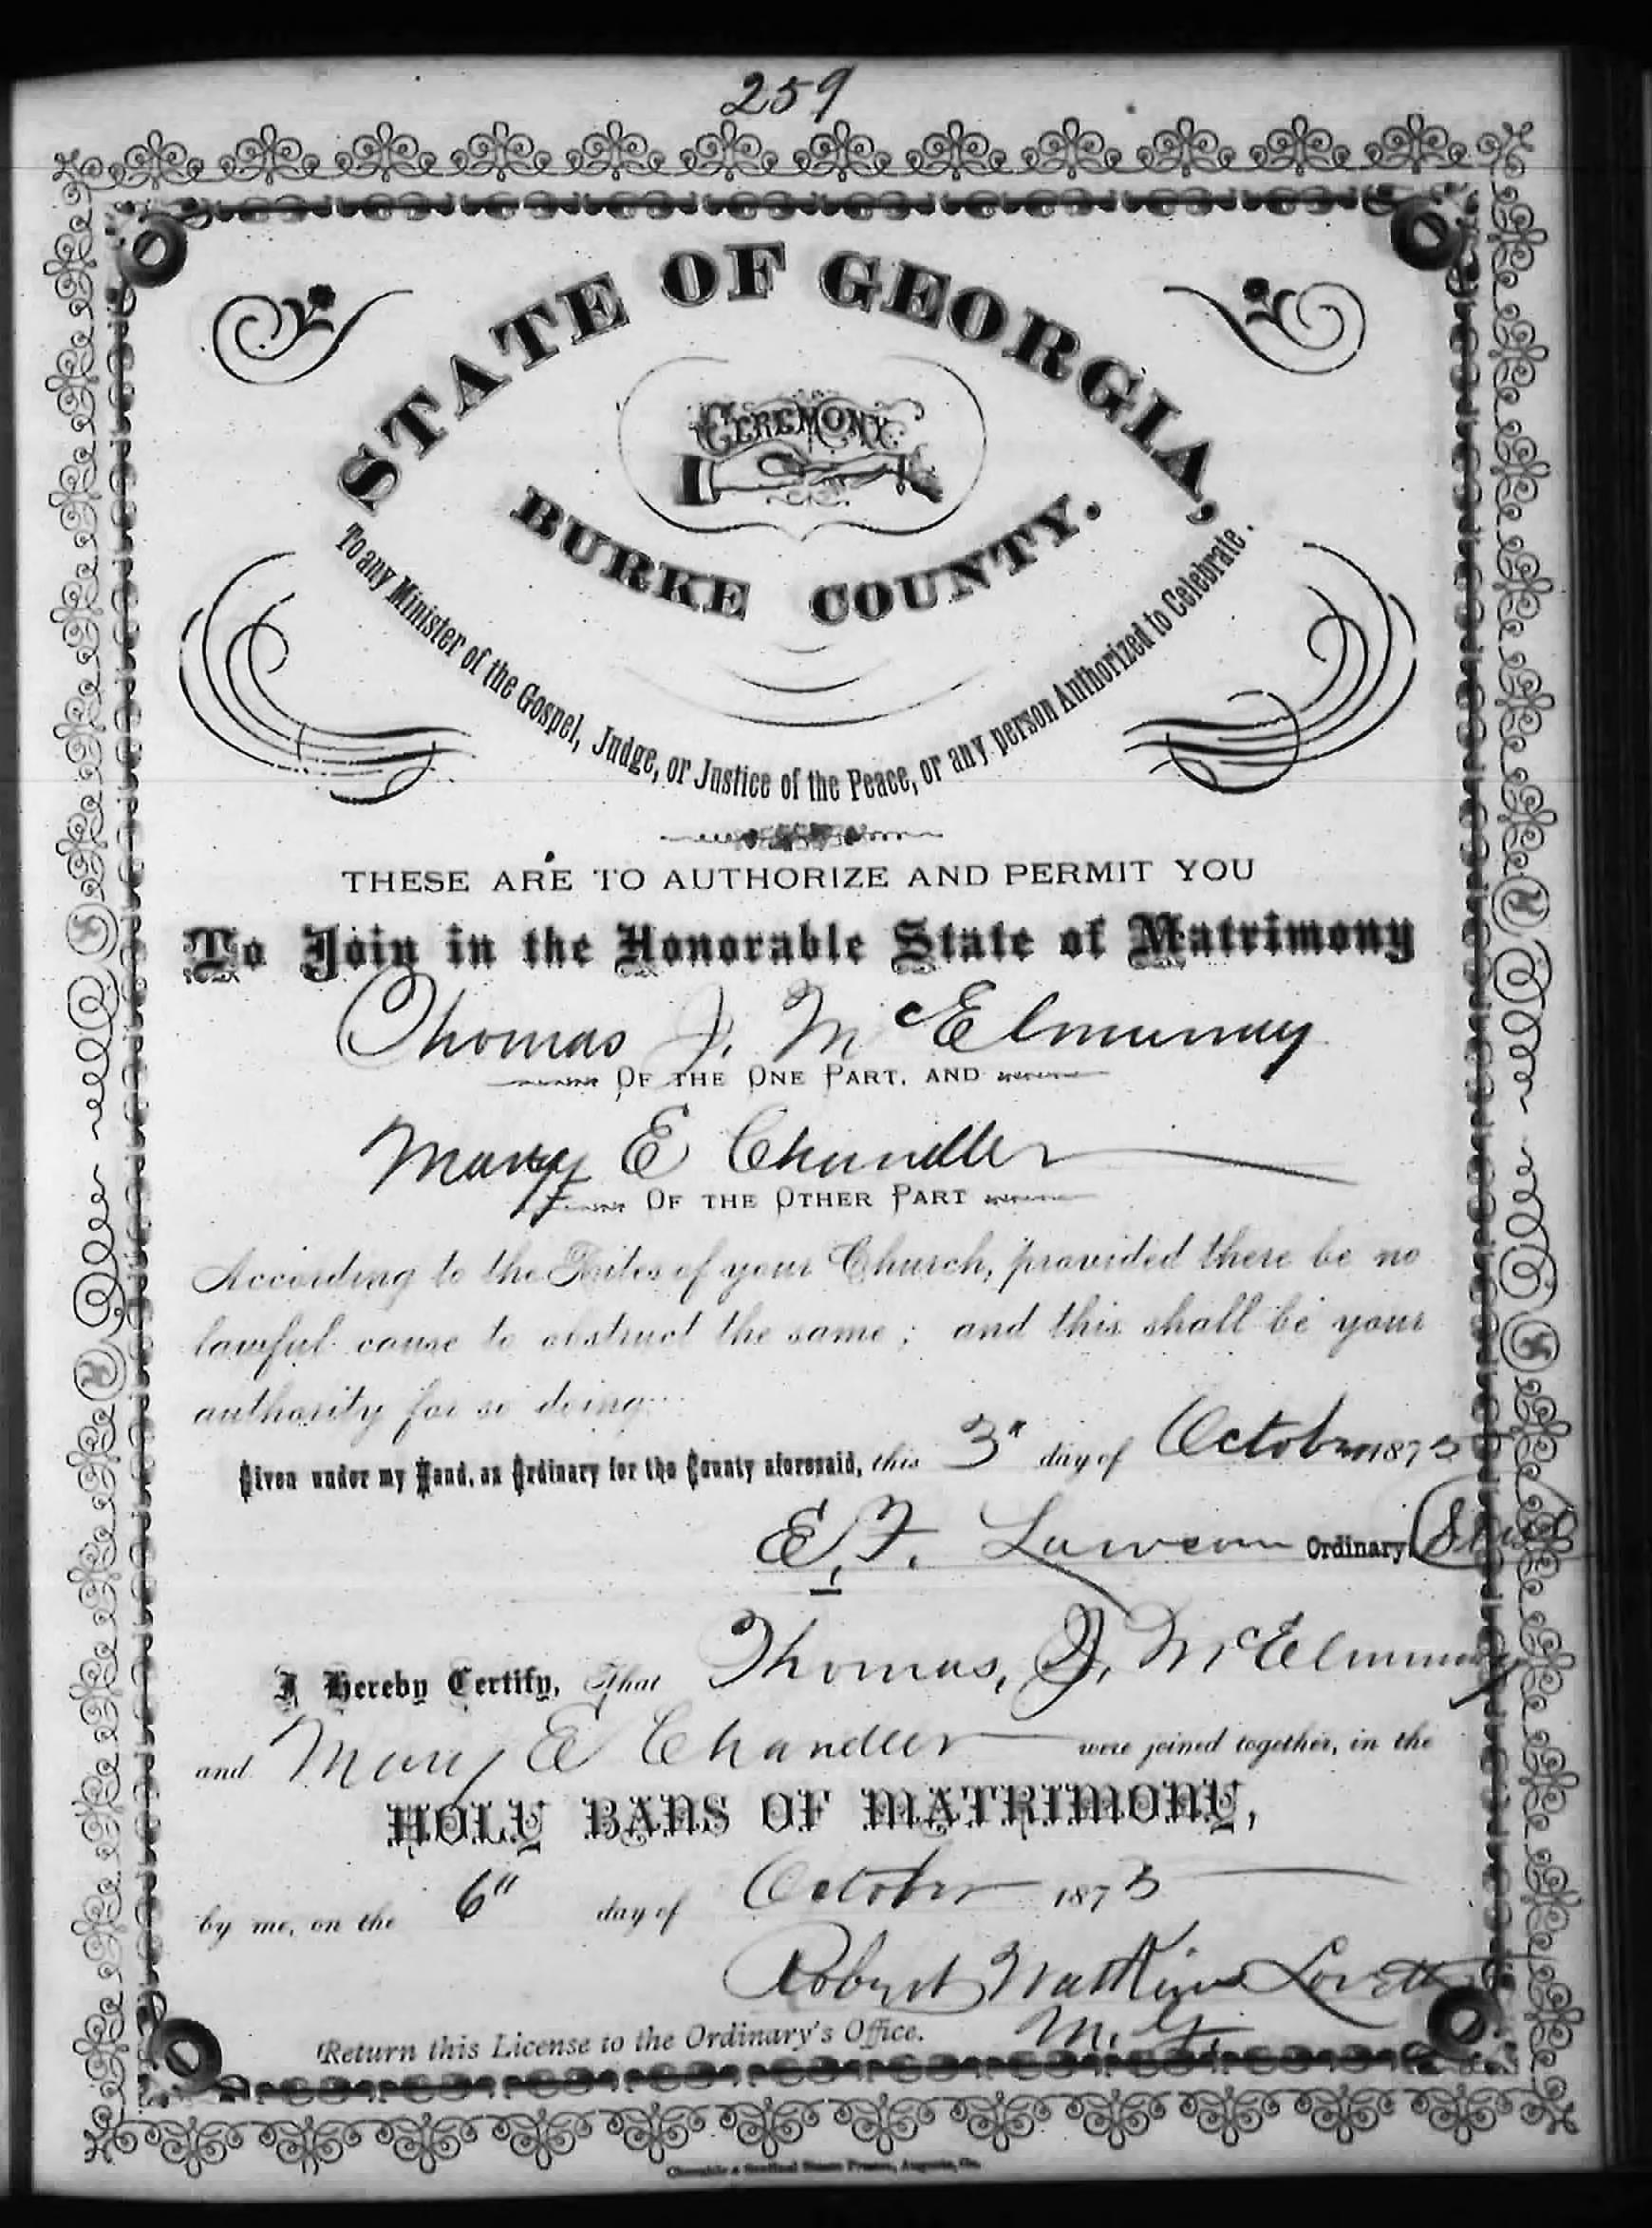 259
STATE OF GEORGIA,
CEREMONY.
BURKE COUNTY.
To any Minister of the Gospel, Judge, or Justice of the Peace, or any person Authorized to Celebrate.
THESE ARE TO AUTHORIZE AND PERMIT YOU
To Join in the Honorable State of Matrimony
Thomas J. McElmurray
OF THE ONE PART, AND
Mary E Chandler
OF THE OTHER PART
According to the Rites of your Church, provided there be no
lawful cause to obstruct the same; and this shall be your
authority for so doing.
Given under my Hand, as Ordinary for the County aforesaid, this 3" day of October 1873
E. F. Lawson Ordinary. Seal
I Hereby Certify, That Thomas, J. McElmurray
and Mary E Chandler were joined together, in the
HOLY BANS OF MATRIMONY,
by me, on the 6" day of October 1873
Robert Watkins Lovett
Return this License to the Ordinary's Office. M. G.
Chronicle & Sentinel Steam Presses, Augusta, Ga.